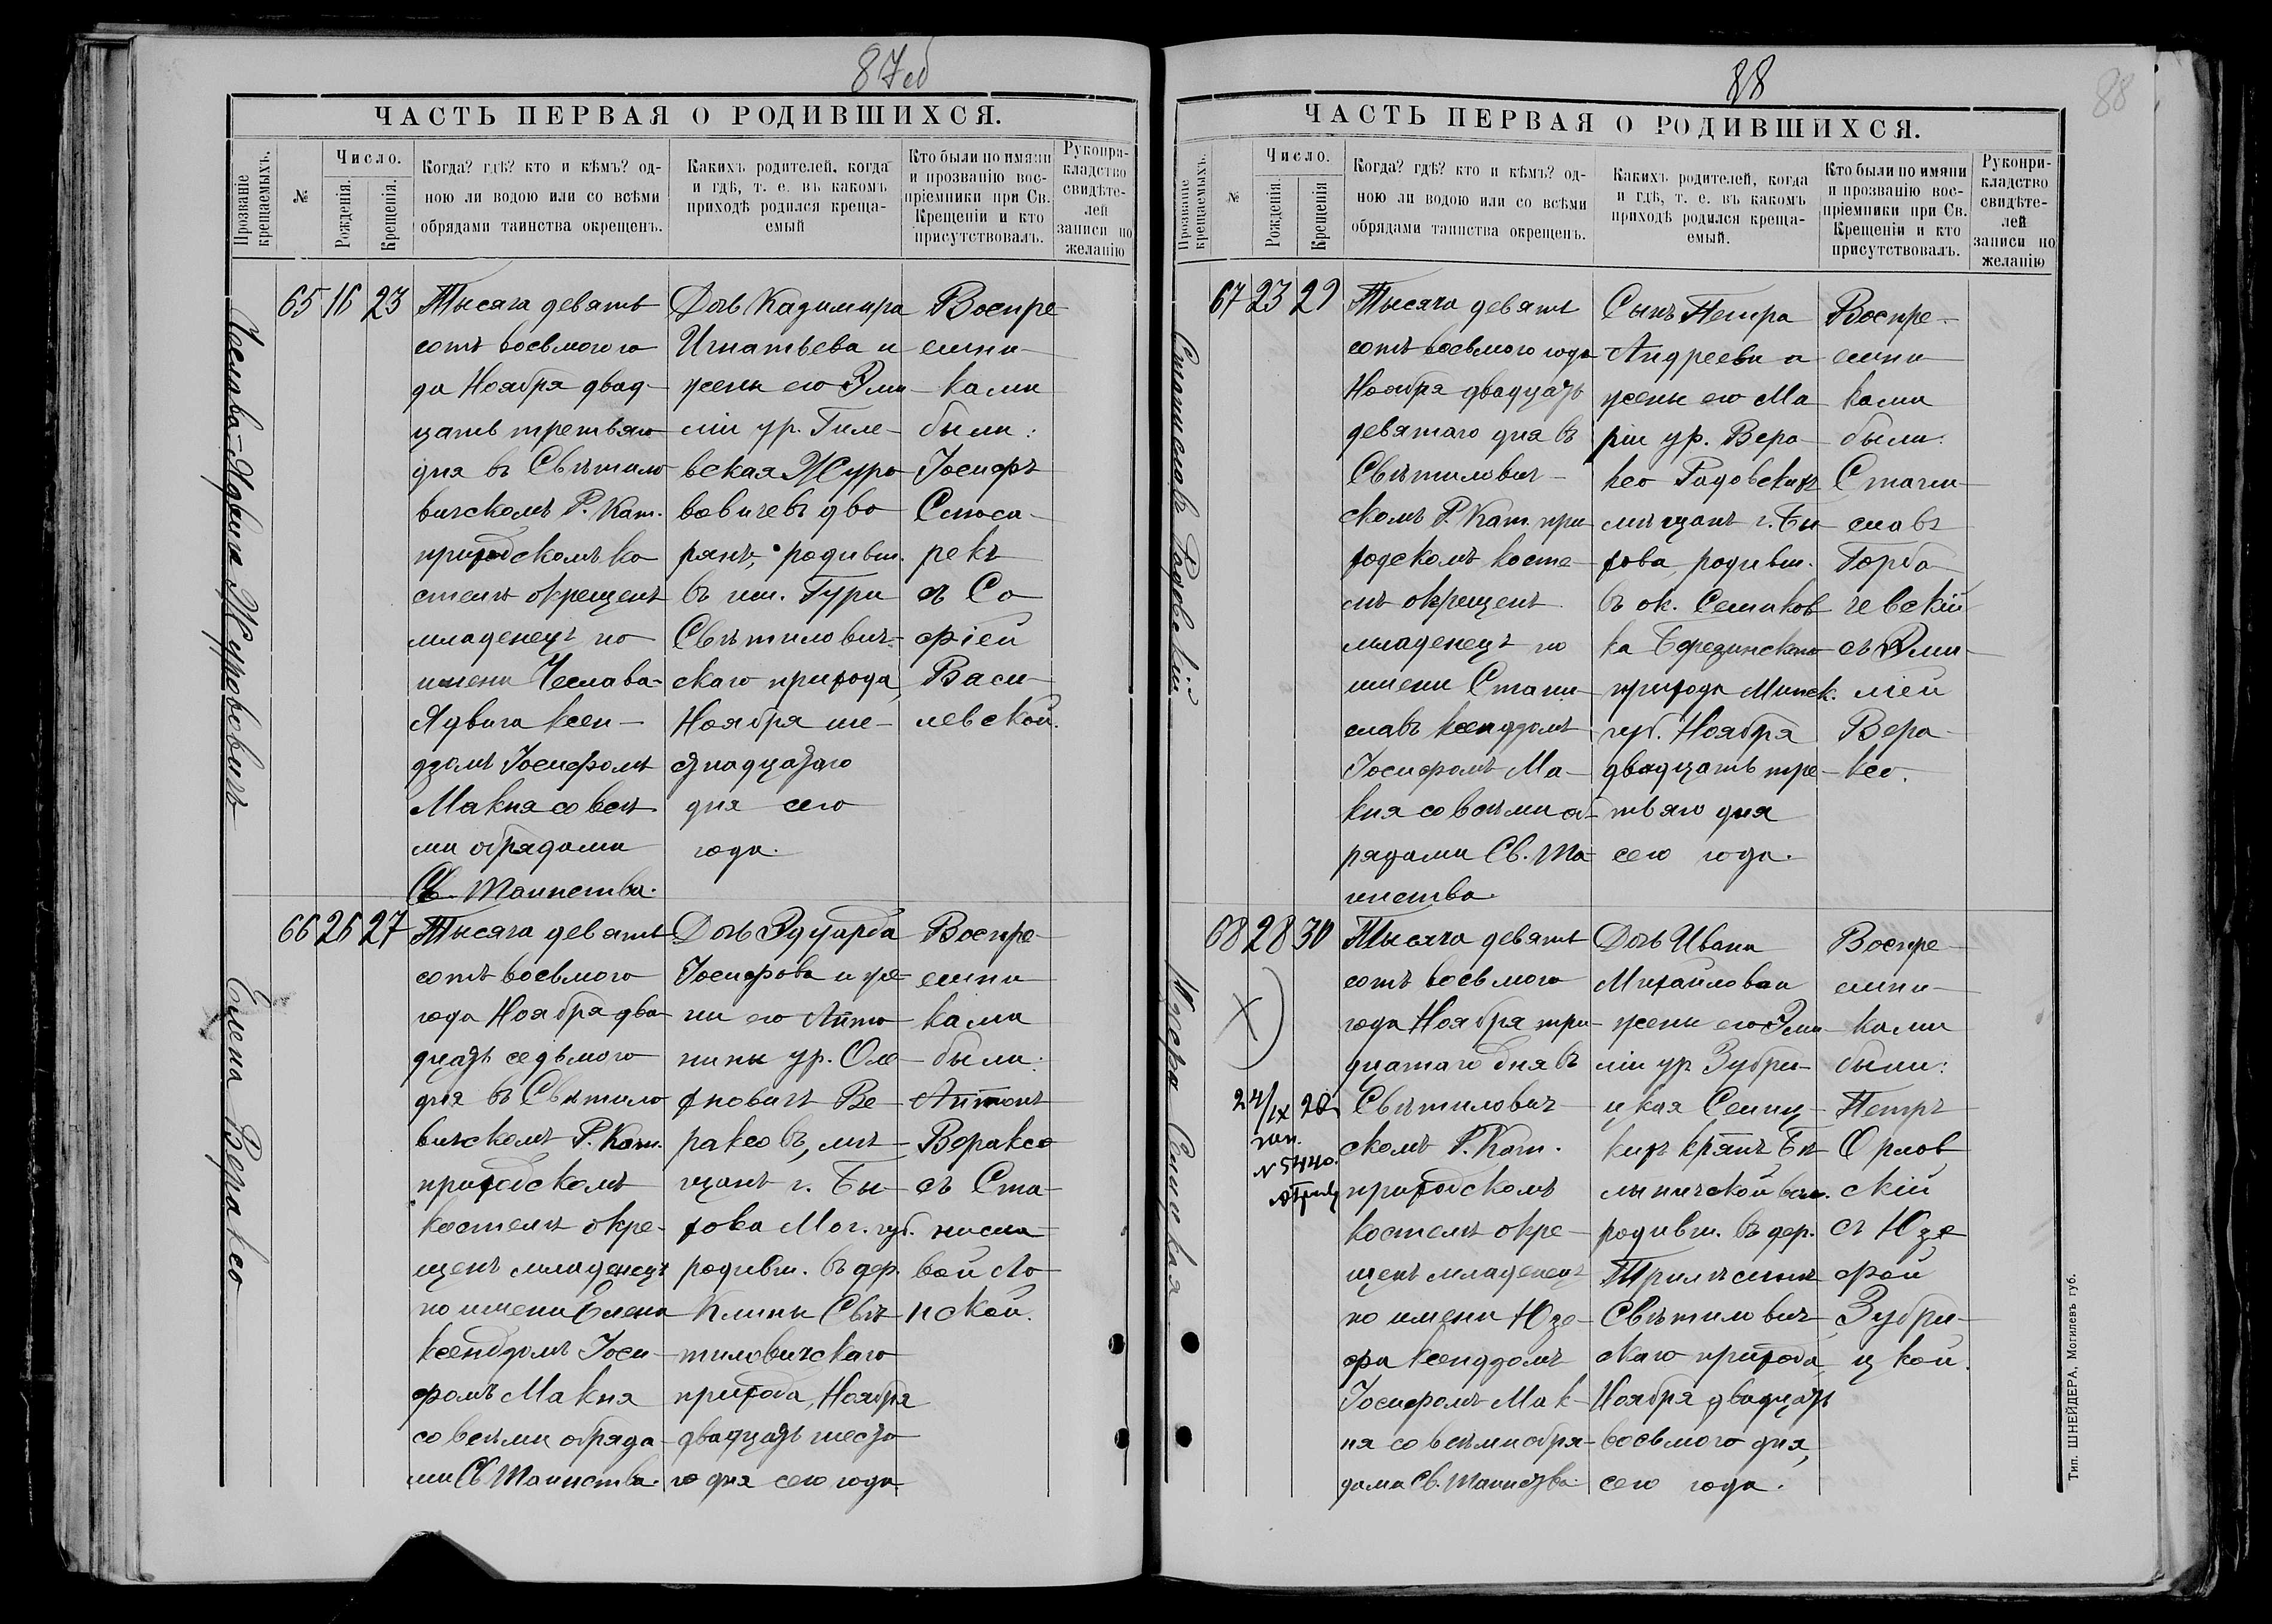 87об
ЧАСТЬ ПЕРВАЯ О РОДИВШИХСЯ.
Прозваніе крещаемыхъ.
№
Число.
Рожденія.
Крещенія.
Когда? гдѣ? кто и кѣмъ? од-
ною ли водою или со всѣми
обрядами таинства окрещенъ.
Какихъ родителей, когда
и гдѣ, т. е. въ какомъ
приходѣ родился креща-
емый
Кто были по имяни
и прозванію вос-
пріемники при Св.
Крещеніи и кто
присутствовалъ.
Рукопри-
кладство
свидѣте-
лей
записи по
желанію
Чеслава-Ядвига Журововичъ
65 16 23
Тысяча девять
сотъ восьмого го
да Ноября двад-
цать третьяго
дня въ Свѣтило
вичскомъ Р. Кат.
приходскомъ ко
стелѣ окрещенъ
младенецъ по
имени Чеслава-
Ядвига ксен-
дзомъ Іосифомъ
Макня со всѣ
ми обрядами
Св. Таинства.
Дочь Казимира
Игнатьева и
жены его Эми
ліи ур. Гиле-
вская Журо
вовичевъ дво
рянъ, родивш.
въ им. Гури
Свѣтилович-
скаго прихода,
Ноября ше-
стнадцатаго
дня сего
года.
Воспре-
емни-
ками
были:
Іосифъ
Слюса-
рекъ
съ Со
фіей
Васи-
левской.
Елена Вераксо
66 26 27
Тысяча девять
сотъ восьмого
года Ноября два
дцать седьмого
дня въ Свѣтило
вичскомъ Р. Кат.
приходскомъ
костелѣ окре-
щенъ младенецъ
по имени Елена
ксендзомъ Іоси-
фомъ Макня
со всѣми обряда-
ми Св. Таинства.
Дочь Эдуарда
Іосифова и же-
ны его Анто
нины ур. Оле-
хновичъ Ве-
раксовъ, мѣ-
щанъ г. Бы-
хова Мог. губ.
родивш. въ дер.
Клины Свѣ-
тиловичскаго
прихода, Ноября
двадцать шесто
го дня сего года
Воспре-
емни-
ками
были:
Антонъ
Вераксо
съ Ста-
нисла-
вой Ло-
нской.
88
88
ЧАСТЬ ПЕРВАЯ О РОДИВШИХСЯ.
Прозваніе крещаемыхъ.
№
Число.
Рожденія.
Крещенія
Когда? гдѣ? кто и кѣмъ? од-
ною ли водою или со всѣми
обрядами таинства окрещенъ.
Какихъ родителей, когда
и гдѣ, т. е. въ какомъ
приходѣ родился креща-
емый.
Кто были по имяни
и прозванію вос-
пріемники при Св.
Крещеніи и кто
присутствовалъ.
Рукопри-
кладство
свидѣте-
лей
записи по
желанію
Станиславъ Радовскій
67 23 29
Тысяча девять
сотъ восьмого года
Ноября двадцать
девятаго дня въ
Свѣтилович-
скомъ Р. Кат. при
ходскомъ косте-
лѣ окрещенъ
младенецъ по
имени Стани-
славъ ксендзомъ
Іосифомъ Ма-
кня со всѣми об-
рядами Св. Та-
инства.
Сынъ Петра
Андреева и
жены его Ма
ріи ур. Вера-
ксо Радовскихъ
мѣщанъ г. Бы
хова, родивш.
въ ок. Семиков
ка Березинскаго
прихода Минск.
губ. Ноября
двадцать тре-
тьяго дня
сего года.
Воспре-
емни-
ками
были:
Стани-
славъ
Горба-
чевскій
съ Эми-
ліей
Вера-
ксо.
Юзефа Синицкая
68 28 30
24/IX 20
N 5440.
Тысяча девять
сотъ восьмого
года Ноября три-
дцатаго дня въ
Свѣтилович-
скомъ Р. Кат.
приходскомъ
костелѣ окре-
щенъ младенецъ
по имени Юзе-
фа ксендзомъ
Іосифомъ Мак-
ня со всѣми обря-
дами Св. Таинства.
Дочь Ивана
Михайлова и
жены его Эми-
ліи ур. Зубри-
цкая Синиц-
кихъ крянъ Бѣ
лыничской вол.
родивш. въ дер.
Трилѣсинъ
Свѣтилович
скаго прихода
Ноября двадцать
восьмого дня,
сего года.
Воспре-
емни-
ками
были:
Петръ
Орлов
скій
съ Юзе
фой
Зубри-
цкой.
Тип. ШНЕЙДЕРА, Могилевъ губ.